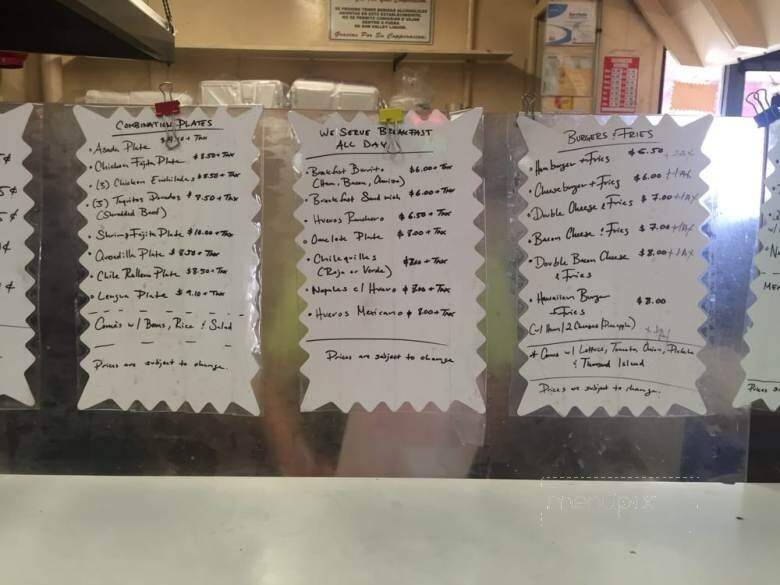 SE PROHIBE TOMAR BEBIDAS ALCOHOLICAS
ADENTRO DE ESTE ESTABLECIMIENTO.
Gracias Por Su Cooperacion
5¢
5¢
5¢
¢
COMBINATION PLATES
• Asada Plate + Tax
• Chicken Fajita Plate $8.50 + Tax
• (3) Chicken Enchiladas $8.50 + Tax
• (5) Taquitos Dorados $8.50 + Tax
(Shredded Beef)
• Shrimp Fajita Plate $10.00 + Tax
• Quesadilla Plate $8.50 + Tax
• Chile Relleno Plate $8.50 + Tax
• Lengua Plate $9.10 + Tax
Comes w/ Beans, Rice & Salad
Prices are subject to change.
WE SERVE BREAKFAST
ALL DAY
• Breakfast Burrito $6.00 + Tax
(Ham, Bacon, Chorizo)
• Breakfast Sandwich $6.00 + Tax
• Hueros Ranchero $6.50 + Tax
• Omelete Plate $8.00 + Tax
• Chilequilles $8.00 + Tax
(Rojo or Verde)
• Nopales c/ Huevo $8.00 + Tax
• Huevos Mexicano $8.00 + Tax
Prices are subject to change
BURGERS & FRIES
• Hamburger + Fries $5.50 + TAX
• Cheeseburger + Fries $6.00 + TAX
• Double Cheese & Fries $7.00 + TAX
• Bacon Cheese & Fries $7.00 + TAX
• Double Bacon Cheese $8.00 + TAX
& Fries
• Hawaiian Burger $8.00
Fries
(w/ Ham/2 Cheeses/Pineapple)
* Comes w/ Lettuce, Tomato, Onion, Pickles
& Thousand Island
Prices are subject to change.
menupix